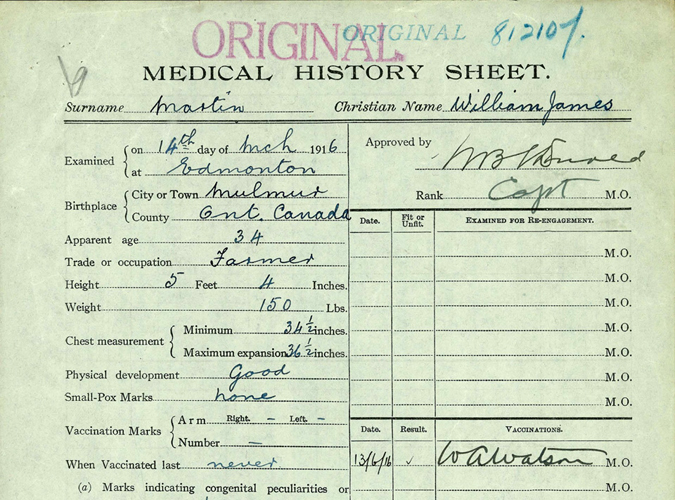 ORIGINAL ORIGINAL 812107.
MEDICAL HISTORY SHEET.
Surname Martin Christian Name William James
Examined { on 14th day of Mch 1916
at Edmonton
Birthplace { City or Town Mulmur
County Ont. Canada
Apparent age 34
Trade or occupation Farmer
Height 5 Feet 4 Inches.
Weight 150 Lbs.
Chest measurement { Minimum 34 1/2 inches.
Maximum expansion 36 1/2 inches.
Physical development Good
Small-Pox Marks none
Vaccination Marks { Arm Right. - Left. -
Number -
When Vaccinated last never
(a) Marks indicating congenital peculiarities or
Approved by
Rank Capt M.O.
Date. Fit or Unfit. EXAMINED FOR RE-ENGAGEMENT.
M.O.
M.O.
M.O.
M.O.
M.O.
M.O.
M.O.
Date. Result. VACCINATIONS.
13/6/16 ✓ W A Watson M.O.
M.O.